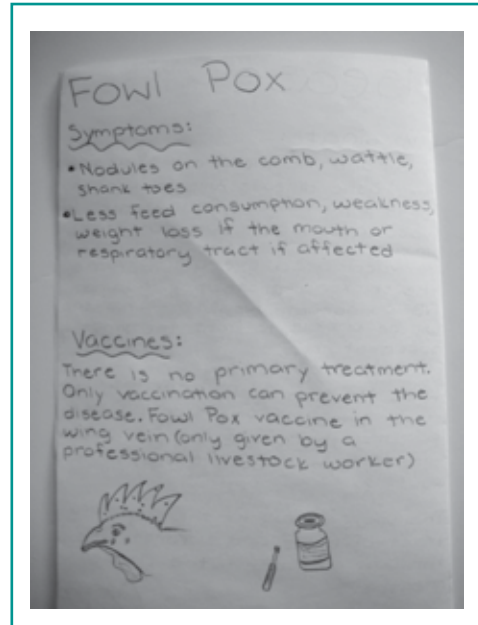 Fowl Pox
Symptoms:
• Nodules on the comb, wattle,
shank toes
• Less feed consumption, weakness,
weight loss if the mouth or
respiratory tract if affected
Vaccines:
There is no primary treatment.
Only vaccination can prevent the
disease. Fowl Pox vaccine in the
wing vein (only given by a
professional livestock worker)